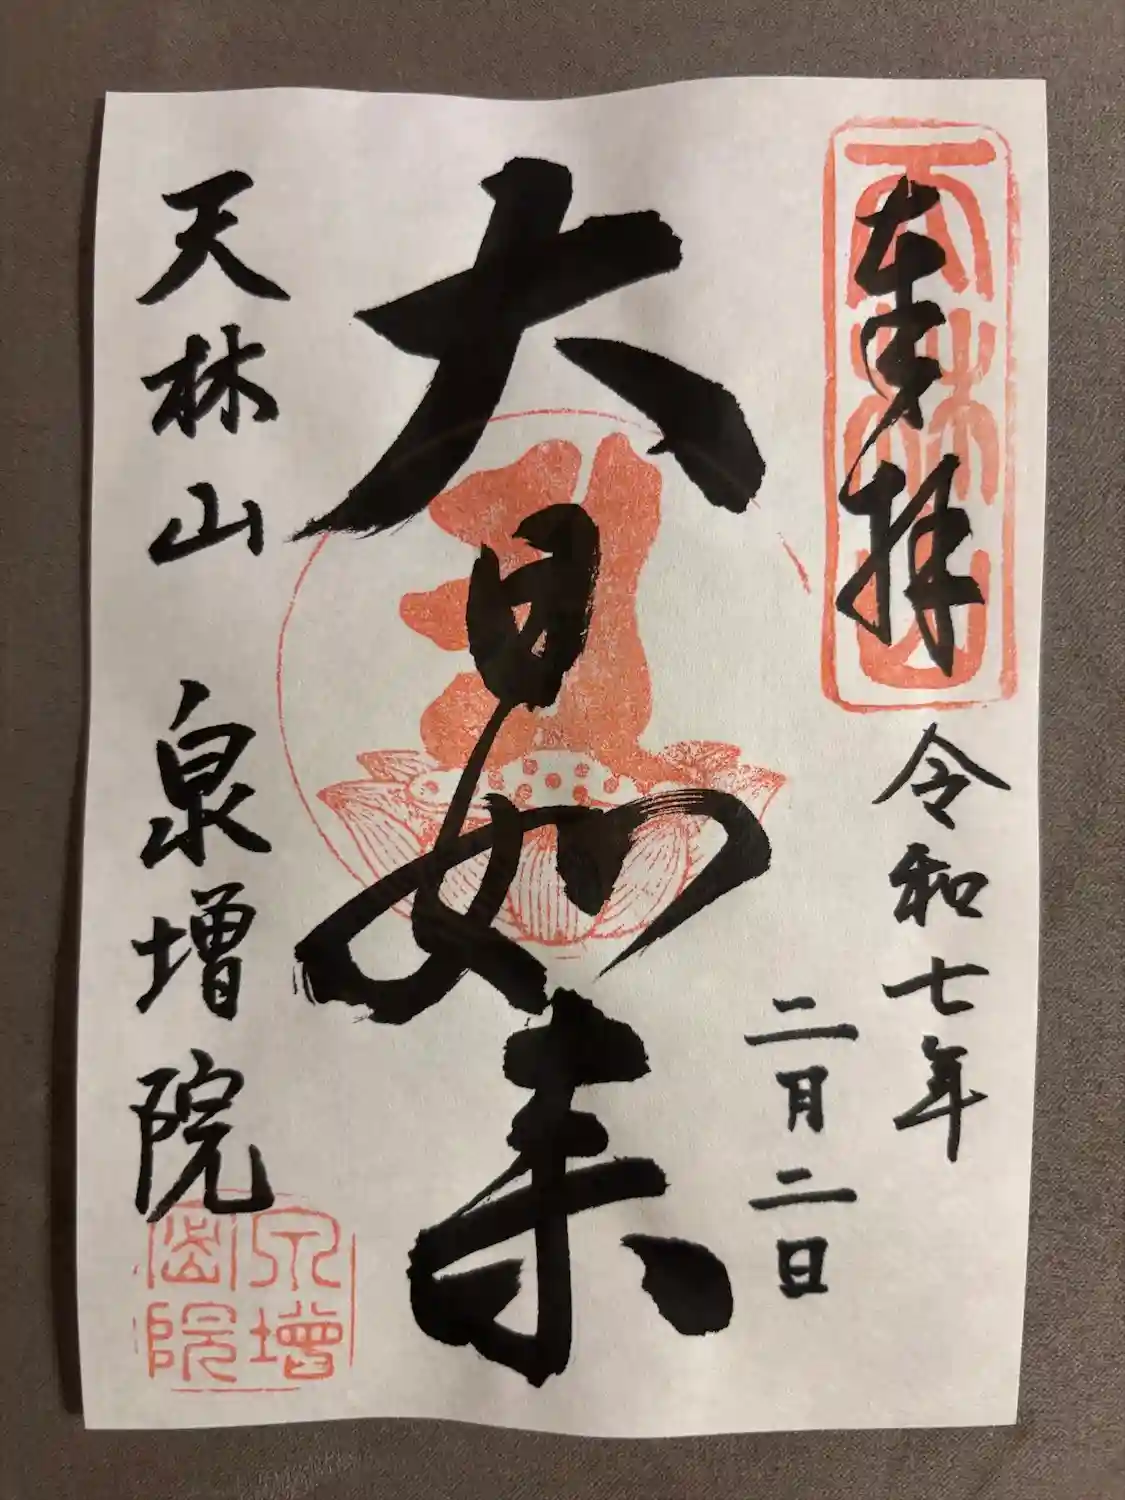 奉拝
令和七年
二月二日
大日如来
天林山 泉増院
天林山